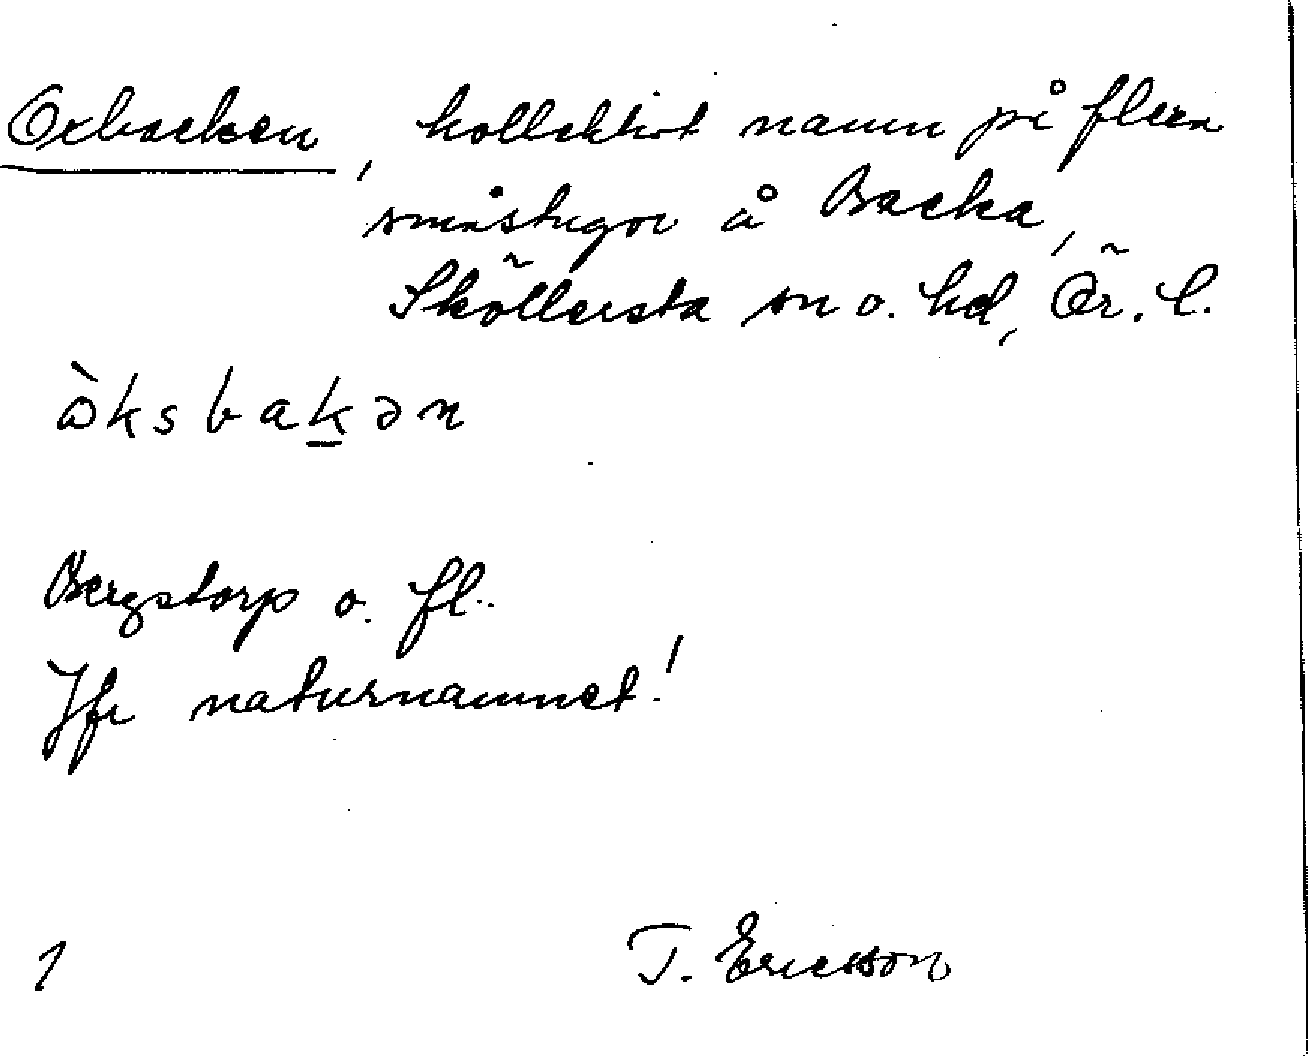 Oxbacken, kollektivt namn på flera
småstugor å Backa,
Sköllersta sn o. hd, Ör. l.
ò̀ksbak̲ən
Bergstorp o. fl.
Jfr naturnamnet!
1 T. Ericsson